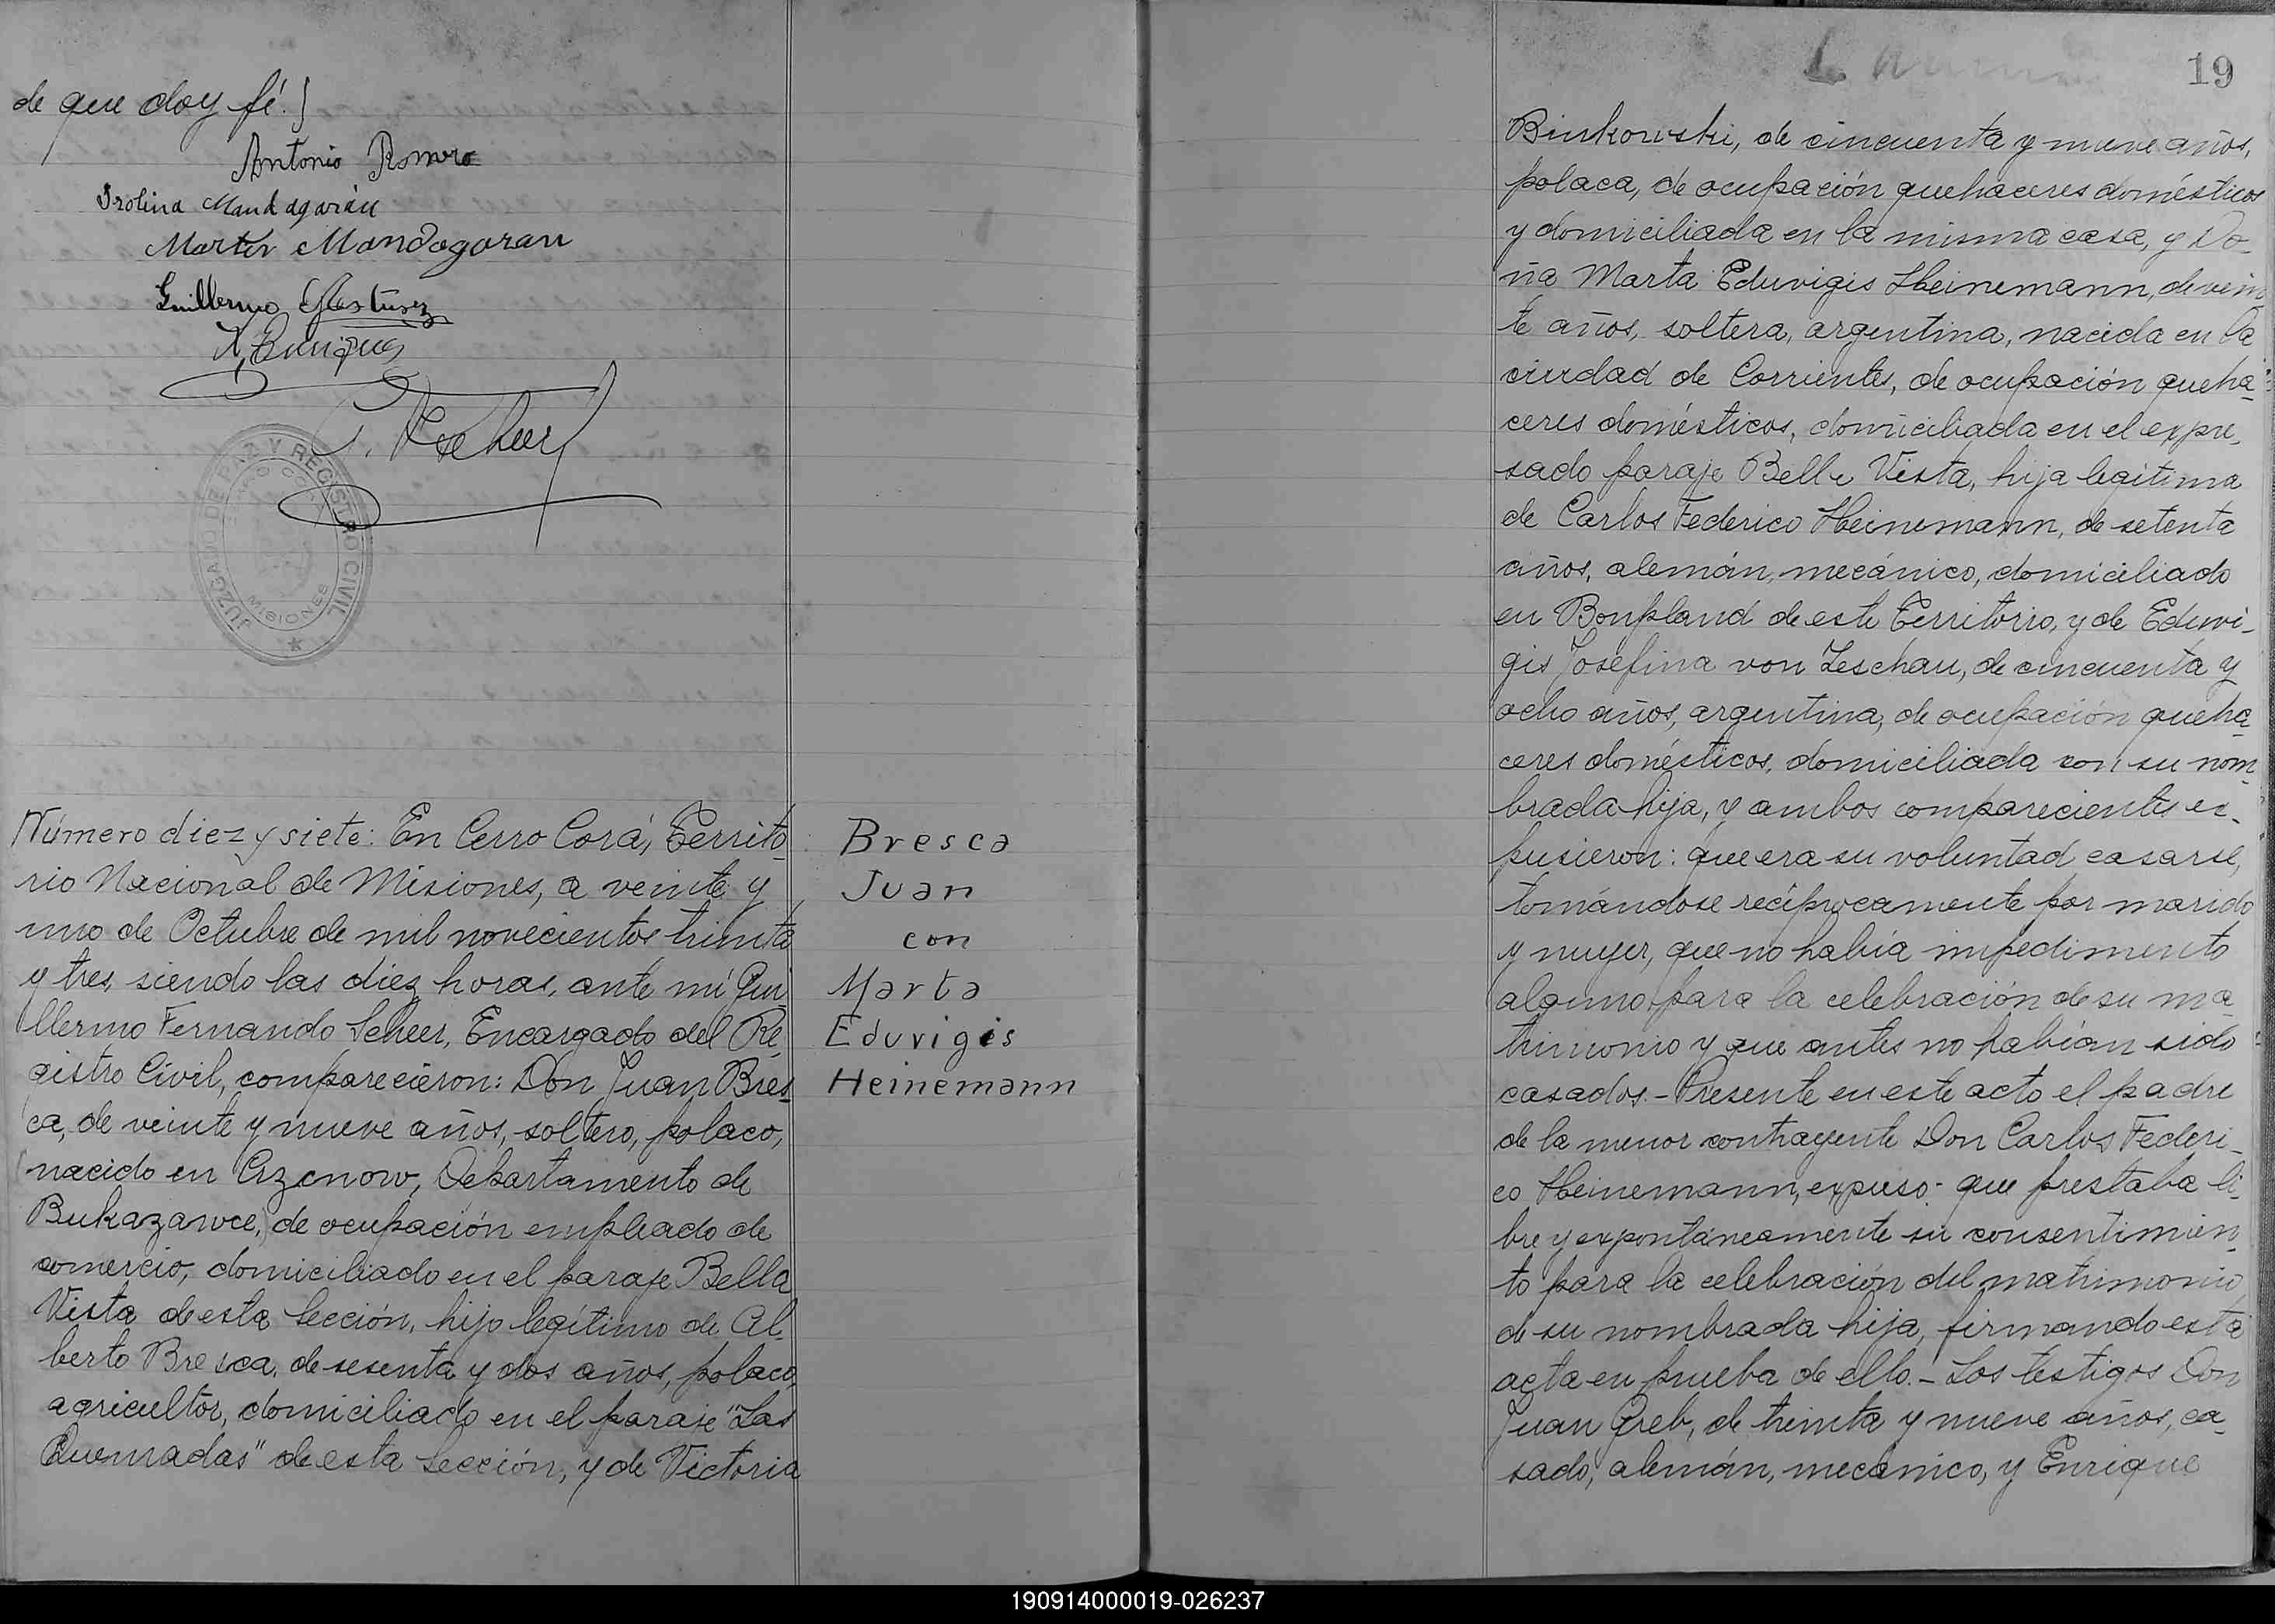 de que doy fé.
Antonio Romero
Irolina Mandagarán
Martin Mandagaran
Guillermo
JUZGADO DE PAZ Y REGISTRO CIVIL
MISIONES
Número diez y siete: En Cerro Corá, Territo-
rio Nacional de Misiones, a veinte y
uno de Octubre de mil novecientos treinta
y tres, siendo las diez horas, ante mí Gui-
llermo Fernando Scheer, Encargado del Re-
gistro Civil, comparecieron: Don Juan Bres-
ca, de veinte y nueve años, soltero, polaco,
nacido en Departamento de
Bukazawce, de ocupación empleado de
comercio, domiciliado en el paraje Bella
Vista de esta Sección, hijo legítimo de Al-
berto Bresca, de sesenta y dos años, polaco,
agricultor, domiciliado en el paraje "Las
Quemadas" de esta Sección, y de Victoria
Bresca
Juan
con
Marta
Eduvigis
Heinemann
19
Binkowski, de cincuenta y nueve años,
polaca, de ocupación quehaceres domésticos
y domiciliada en la misma casa, y Do-
ña Marta Eduvigis Heinemann, de vein-
te años, soltera, argentina, nacida en la
ciudad de Corrientes, de ocupación queha-
ceres domésticos, domiciliada en el expre-
sado paraje Bella Vista, hija legítima
de Carlos Federico Heinemann, de setenta
años, alemán, mecánico, domiciliado
en Bonpland de este Territorio, y de Eduvi-
gis Josefina von Zeschau, de cincuenta y
ocho años, argentina, de ocupación queha-
ceres domésticos, domiciliada con su nom-
brada hija, y ambos comparecientes ex-
pusieron: que era su voluntad casarse,
tomándose recíprocamente por marido
y mujer, que no había impedimento
alguno para la celebración de su ma-
trimonio y que antes no habían sido
casados.- Presente en este acto el padre
de la menor contrayente Don Carlos Federi-
co Heinemann, expuso: que prestaba li-
bre y expontáneamente su consentimien-
to para la celebración del matrimonio
de su nombrada hija, firmando esta
acta en prueba de ello.- Los testigos Don
Juan Greb, de treinta y nueve años, ca-
sado, alemán, mecánico, y Enrique
190914000019-026237